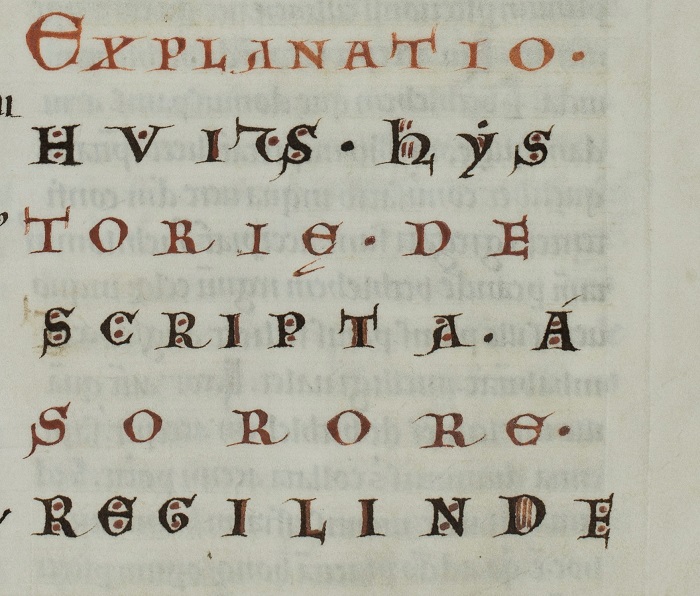 EXPLANATIO·
HVIVS· HẏS
TORIĘ· DE
SCRIPTA· Á
SORORE·
REGILINDE